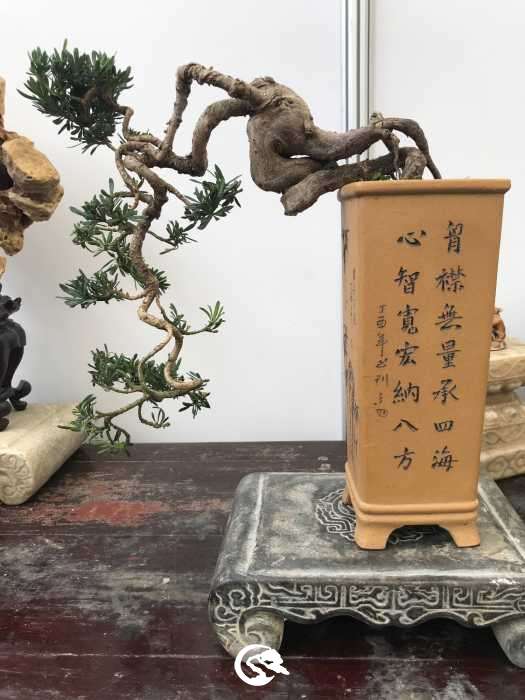 胷襟無量承四海
心智寬宏納八方
丁酉年